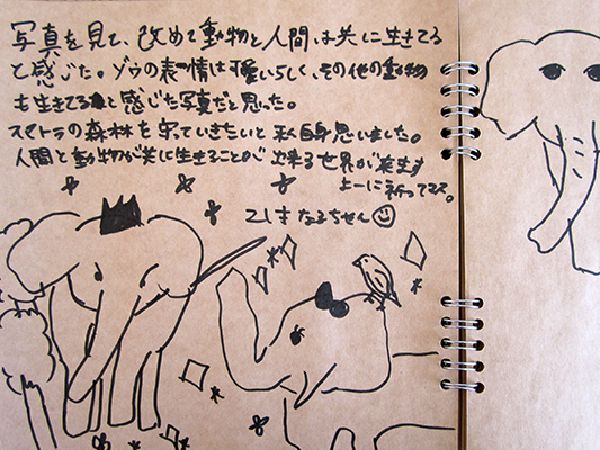 写真を見て、改めて動物と人間は共に生きてる
と感じた。ゾウの表情は可愛いらしく、その他の動物
も生きてると感じた写真だと思った。
スマトラの森林を守っていきたいと私自身思いました。
人間と動物が共に生きることが出来る世界が来ます
ように祈ってます。